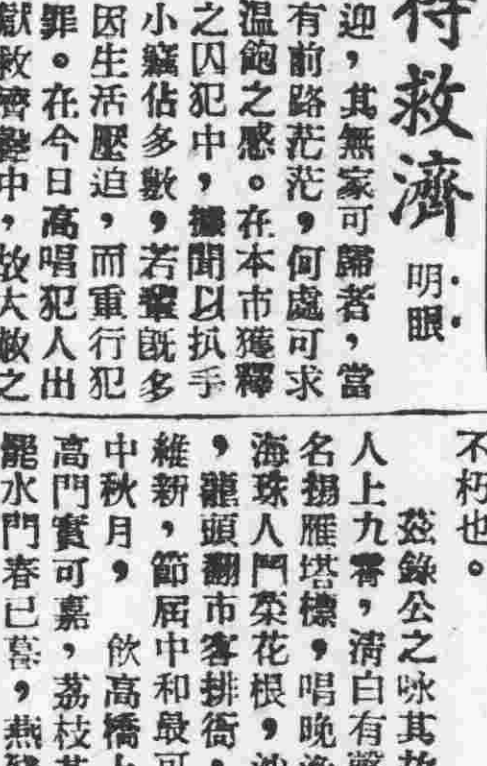 待救濟
明眼
迎，其無家可歸者，當
有前路茫茫，何處可求
溫飽之感。在本市獲釋
之囚犯中，據聞以扒手
小竊佔多數，若輩旣多
因生活壓迫，而重行犯
罪。在今日高唱犯人出
獄救濟聲中，故大赦之
不朽也。
茲錄公之咏其故
人上九霄，淸白有聲
名揚雁塔標，唱晚漁
海珠人鬥菜花根，沙
，龍頭翻市客排衙，
維新，節屆中和最可
中秋月，　飮高橋
高門實可嘉，荔枝
罷水門春已暮，燕